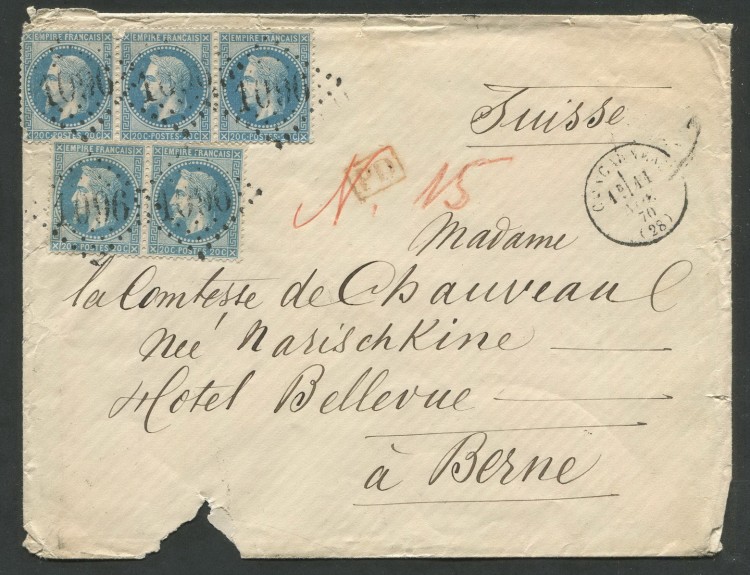 EMPIRE FRANÇAIS EMPIRE FRANÇAIS EMPIRE FRANÇAIS
1096 1096 1096
20C POSTES 20C 20C POSTES 20C 20C POSTES 20C
EMPIRE FRANÇAIS EMPIRE FRANÇAIS
1096 1096
20C POSTES 20C 20C POSTES 20C
Suisse
N. 15
PD
CONCARNEAU
11
70
(28)
Madame
la Comtesse de Chauveau
née Narischkine
Hotel Bellevue
à Berne